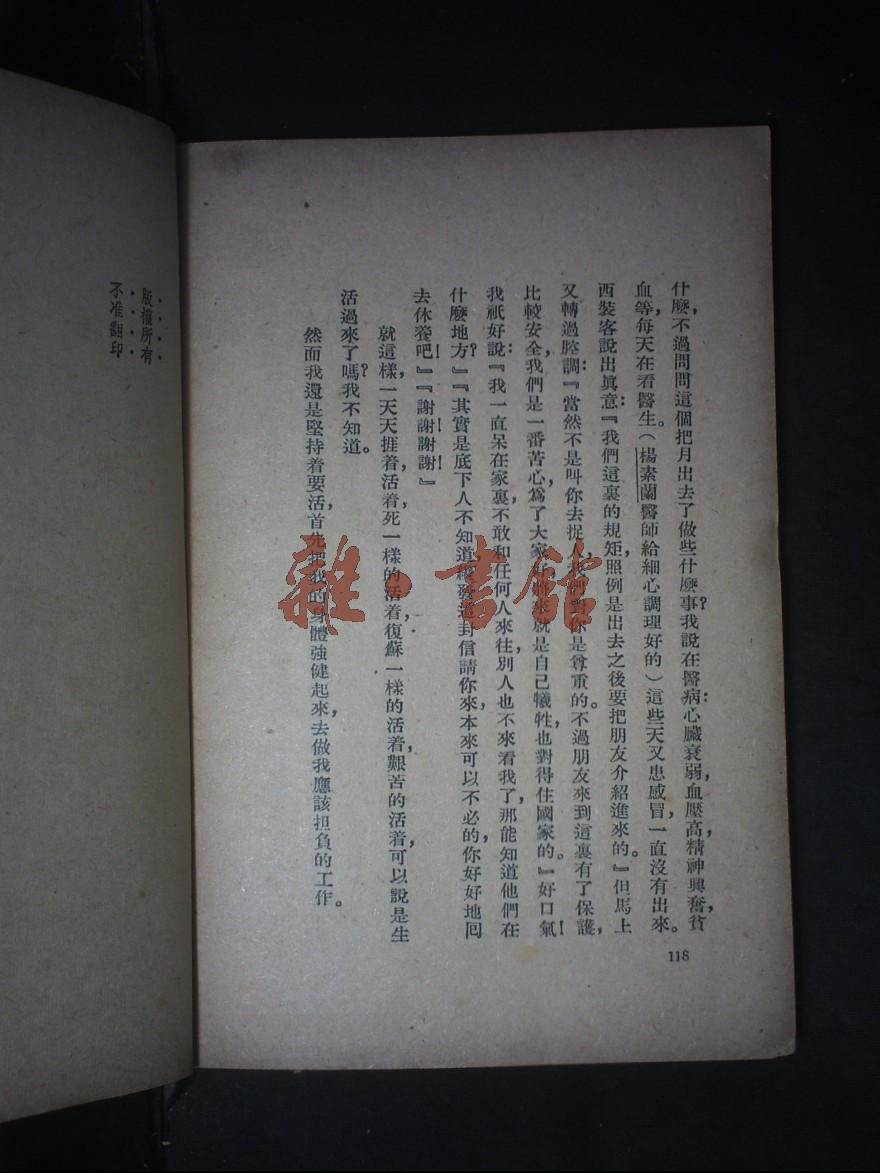 什麼，不過問問這個把月出去了做些什麼事？我說在醫病：心臟衰弱，血壓高，精神興奮，貧
血等，每天在看醫生。（楊素蘭醫師給細心調理好的）這些天又患感冒，一直沒有出來。
西裝客說出眞意：『我們這裏的規矩，照例是出去之後要把朋友介紹進來的。』但馬上
又轉過腔調：『當然不是叫你去捉人，我們對你是尊重的。不過朋友來到這裏有了保護，
比較安全，我們是一番苦心，爲了大家好，將來就是自己犧牲也對得住國家的。』好口氣！
我祇好說：『我一直呆在家裏，不敢和任何人來往，別人也不來看我了，那能知道他們在
什麼地方？』『其實是底下人不知道，發這封信請你來，本來可以不必的，你好好地囘
去休養吧！』『謝謝！謝謝！』
就這樣，一天天捱着，活着，死一樣的活着，復蘇一樣的活着，艱苦的活着，可以說是生
活過來了嗎？我不知道。
然而我還是堅持着要活，首先把我的身體強健起來，去做我應該担負的工作。
118
版權所有
不准翻印
雜·書館